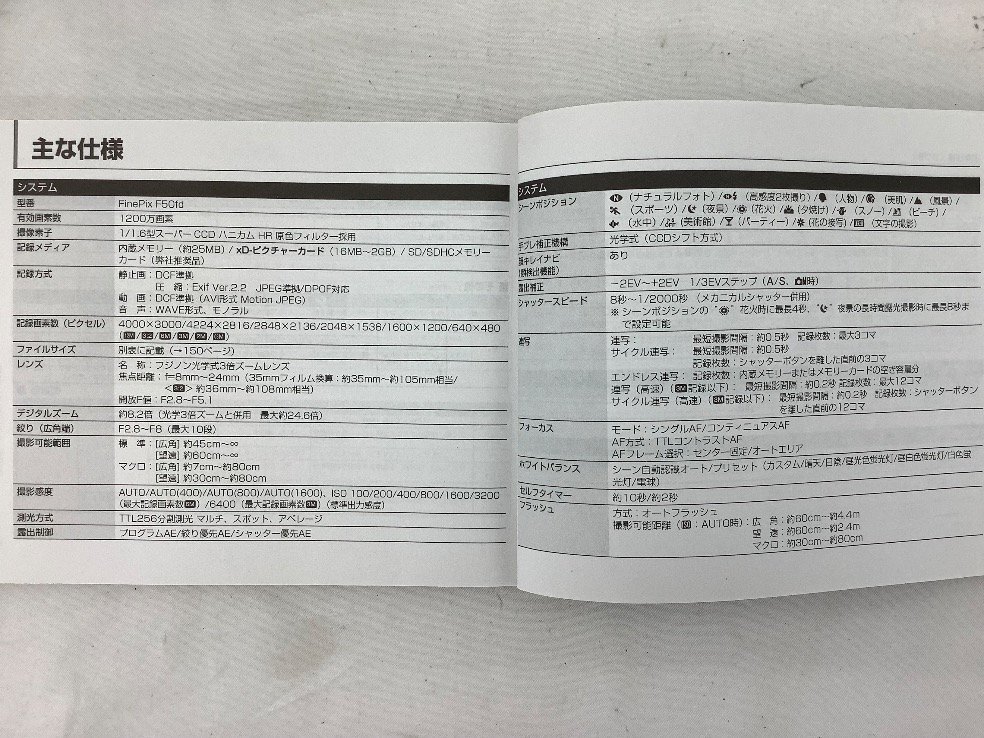 主な仕様
システム
型番 FinePix F50fd
有効画素数 1200万画素
撮像素子 1/1.6型スーパーCCD ハニカム HR 原色フィルター採用
記録メディア 内蔵メモリー（約25MB）/ xD-ピクチャーカード（16MB～2GB）/ SD/SDHCメモリー
カード（弊社推奨品）
記録方式 静止画：DCF準拠
圧 縮：Exif Ver.2.2 JPEG準拠/DPOF対応
動 画：DCF準拠（AVI形式 Motion JPEG）
音 声：WAVE形式、モノラル
記録画素数（ピクセル） 4000×3000/4224×2816/2848×2136/2048×1536/1600×1200/640×480
ファイルサイズ 別表に記載（→150ページ）
レンズ 名 称：フジノン光学式3倍ズームレンズ
焦点距離：f=8mm～24mm（35mmフィルム換算：約35mm～約105mm相当/
約36mm～約108mm相当）
開放F値：F2.8～F5.1
デジタルズーム 約8.2倍（光学3倍ズームと併用 最大約24.6倍）
絞り（広角端） F2.8～F8（最大10段）
撮影可能範囲 標 準：[広角] 約45cm～∞
[望遠] 約60cm～∞
マクロ：[広角] 約7cm～約80cm
[望遠] 約30cm～約80cm
撮影感度 AUTO/AUTO(400)/AUTO(800)/AUTO(1600)、ISO 100/200/400/800/1600/3200
（最大記録画素数）/6400（最大記録画素数）（標準出力感度）
測光方式 TTL256分割測光 マルチ、スポット、アベレージ
露出制御 プログラムAE/絞り優先AE/シャッター優先AE
システム
シーンポジション （ナチュラルフォト）/（高感度2枚撮り）/（人物）/（美肌）/（風景）/
（スポーツ）/（夜景）/（花火）/（夕焼け）/（スノー）/（ビーチ）/
（水中）/（美術館）/（パーティー）/（花の接写）/（文字の撮影）
手ブレ補正機構 光学式（CCDシフト方式）
顔キレイナビ あり
（顔検出機能）
露出補正 −2EV～+2EV 1/3EVステップ（A/S、時）
シャッタースピード 8秒～1/2000秒（メカニカルシャッター併用）
※ シーンポジションの“” 花火時に最長4秒、“” 夜景の長時間露光撮影時に最長8秒ま
で設定可能
連写 連写： 最短撮影間隔：約0.5秒 記録枚数：最大3コマ
サイクル連写： 最短撮影間隔：約0.5秒
記録枚数：シャッターボタンを離した直前の3コマ
エンドレス連写： 記録枚数：内蔵メモリーまたはメモリーカードの空き容量分
連写（高速）（記録以下）： 最短撮影間隔：約0.2秒 記録枚数：最大12コマ
サイクル連写（高速）（記録以下）： 最短撮影間隔：約0.2秒 記録枚数：シャッターボタン
を離した直前の12コマ
フォーカス モード：シングルAF/コンティニュアスAF
AF方式：TTLコントラストAF
AFフレーム選択：センター固定/オートエリア
ホワイトバランス シーン自動認識オート/プリセット（カスタム/晴天/日陰/昼光色蛍光灯/昼白色蛍光灯/白色蛍
光灯/電球）
セルフタイマー 約10秒/約2秒
フラッシュ 方式：オートフラッシュ
撮影可能距離（：AUTO時）：広 角：約60cm～約4.4m
望 遠：約60cm～約2.4m
マクロ：約30cm～約80cm